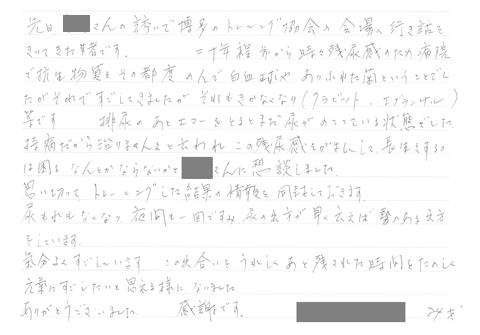 先日 さんの誘いで博多のトレーニング協会の会場へ行き話を
きいてきた者です。 二十年程前から時々残尿感のため病院
で抗生物質をその都度のんで白血球や ありふれた菌ということでし
たがそれですごしてきましたが それもきかなくなり(クラビット、
等です 排尿のあとエコーをとるとまだ尿がのこっている状態でした
持病だから治りませんよと言われ この残尿感をがまんして、長生きするの
は困る なんとかならないかと さんに相談しました。
思い切って トレーニングした結果の情報を同封しておきます。
尿もれもなくなり 夜間も一回ですみ、尿の出方が早く云えば 勢いのある出方
をしています。
気分よくすごしています この出合いをうれしく あと残された時間をたのしく
元気にすごしたいと思える様になりました
ありがとうございました 感謝です。